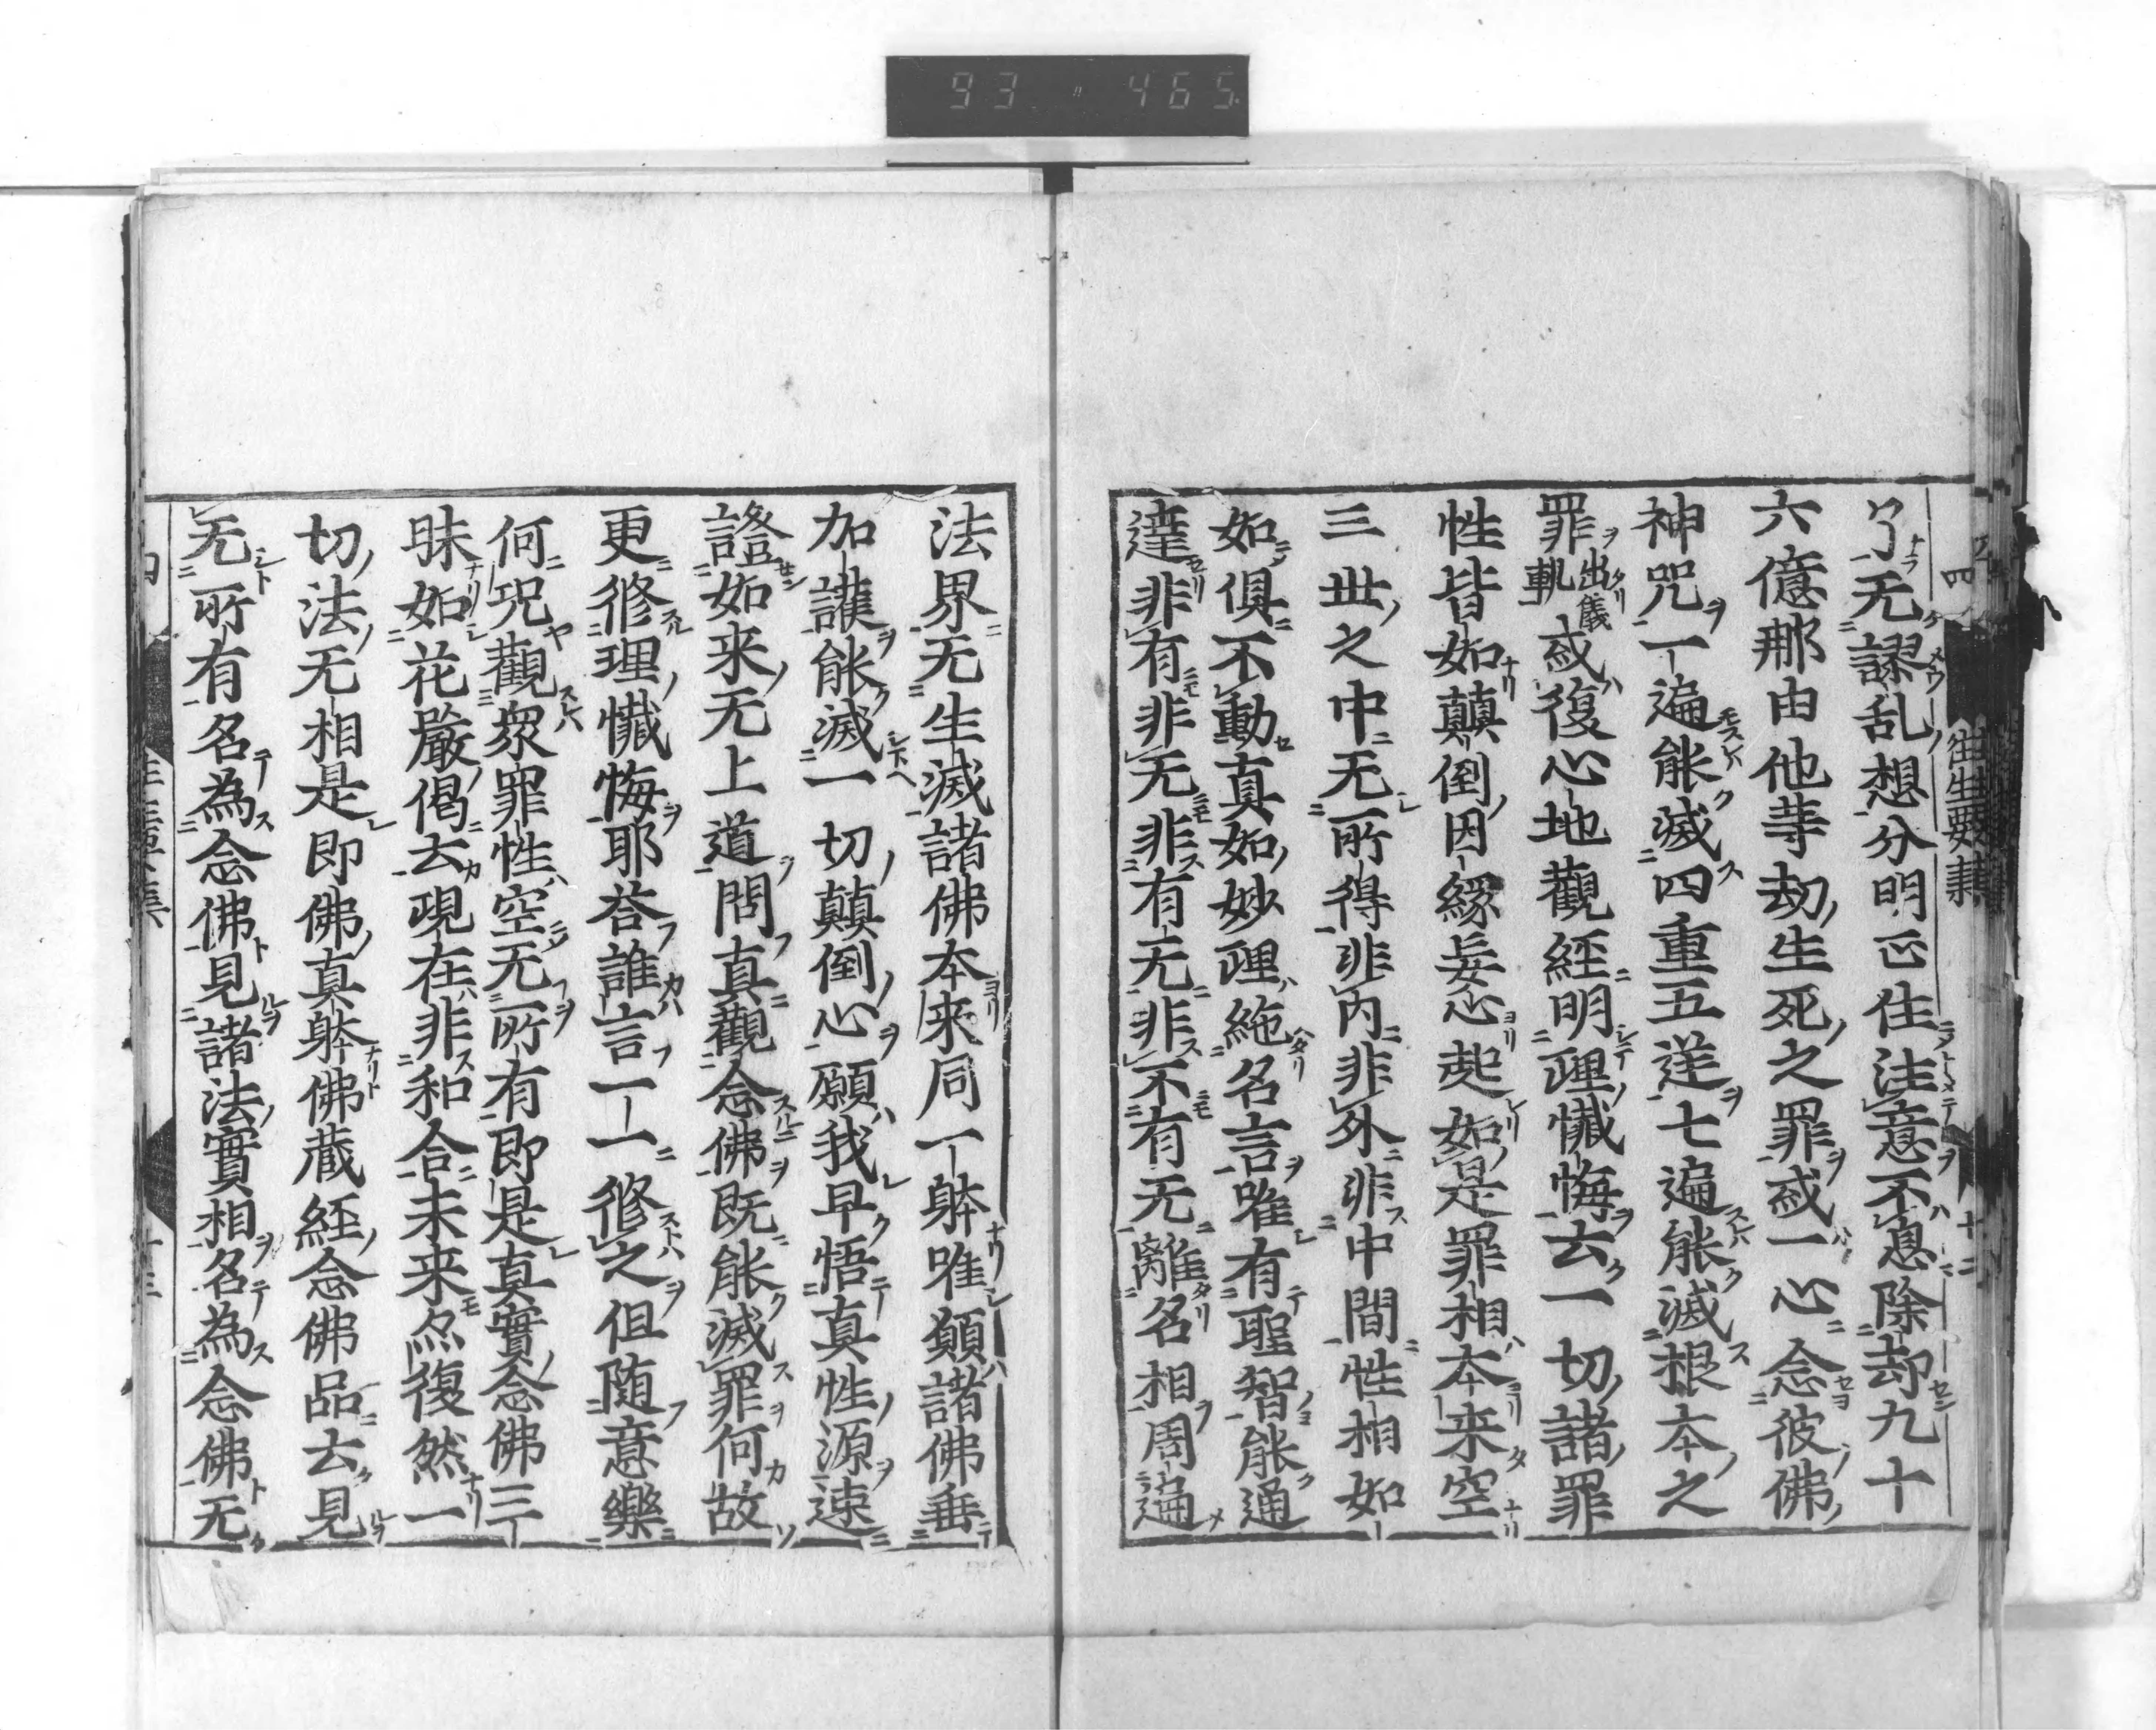 93 465
往生要集
四
十二
了无謬乱想分明正住法意不息除却九十
六億那由他等劫生死之罪或一心念彼佛
神咒一遍能滅四重五逆七遍能滅根本之
罪出儀軌或復心地觀經明理懺悔云一切諸罪
性皆如顛倒因緣妄心起如是罪相本来空
三世之中无所得非内非外非中間性相如
如俱不動真如妙理絶名言唯有聖智能通
達非有非无非有无非不有无離名相周遍
法界无生滅諸佛本来同一躰唯願諸佛垂
加護能滅一切顛倒心願我早悟真性源速
證如来无上道問真觀念佛既能滅罪何故
更修理懺悔耶荅誰言一一修之但随意樂
何況觀衆罪性空无所有即是真實念佛三
昧如花嚴偈云現在非和合未来亦復然一
切法无相是即佛真躰佛蔵経念佛品云見
无所有名為念佛見諸法實相名為念佛无